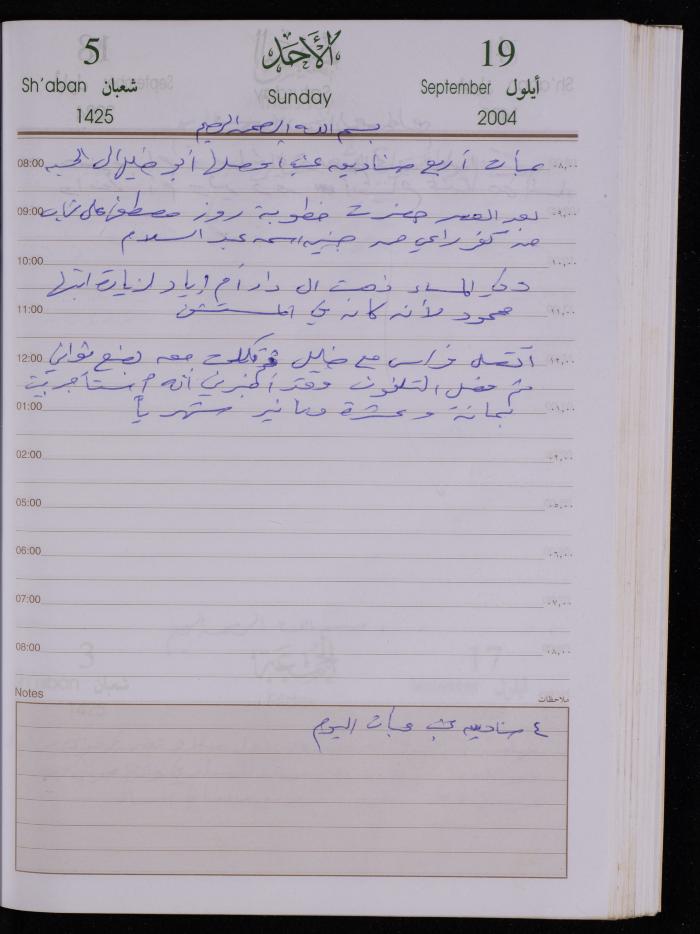 5 الأحد 19
Sh'aban شعبان Sunday September أيلول
1425 2004
بسم الله الرحمن الرحيم
08:00 عبأت أربع صناديق عنب أوصلها أبو خليل ال ٠٨,٠٠
09:00 بعد العصر حضرت خطوبة روز مصطفى علي ٠٩,٠٠
من كفر راعي من جنين اسمه عبد السلام
10:00 ١٠,٠٠
وفي المساء ذهبت الى دار أم إياد لزيارة ابنها
11:00 محمود لأنه كان في المستشفى ١١,٠٠
12:00 اتصل فراس مع خليل وتكلمت معه بضع ثواني ١٢,٠٠
ثم فصل التلفون وقد أخبرني أنه استأجر بيت
01:00 بمائة وعشرة دنانير شهرياً ٠١,٠٠
02:00 ٠٢,٠٠
05:00 ٠٥,٠٠
06:00 ٠٦,٠٠
07:00 ٠٧,٠٠
08:00 ٠٨,٠٠
Notes ملاحظات
٤ صناديق عنب عبأت اليوم